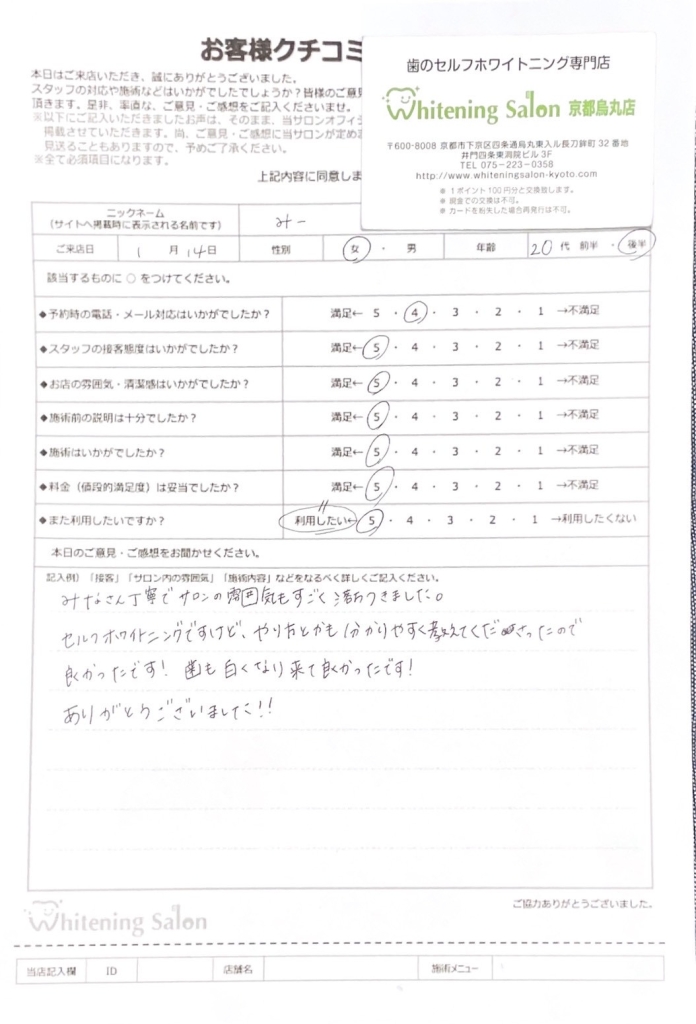 お客様クチコミ
本日はご来店いただき、誠にありがとうございました。
スタッフの対応や施術などはいかがでしたでしょうか？皆様のご意見
頂きます。是非、率直な、ご意見・ご感想をご記入くださいませ。
※以下にご記入いただきましたお声は、そのまま、当サロンオフィシ
掲載させていただきます。尚、ご意見・ご感想に当サロンが定め
見送ることもありますので、予めご了承ください。
※全て必須項目になります。
上記内容に同意しま
歯のセルフホワイトニング専門店
Whitening Salon 京都烏丸店
〒600-8008 京都市下京区四条通烏丸東入ル長刀鉾町 32 番地
井門四条東洞院ビル 3F
TEL 075-223-0358
http://www.whiteningsalon-kyoto.com
※ 1ポイント 100 円分と交換致します。
※ 現金での交換は不可。
※ カードを紛失した場合再発行は不可。
ニックネーム
(サイトへ掲載時に表示される名前です)
みー
ご来店日 1 月 14 日 性別 女 ・ 男 年齢 20 代 前半 ・ 後半
該当するものに ○ をつけてください。
◆予約時の電話・メール対応はいかがでしたか？ 満足← 5 ・ 4 ・ 3 ・ 2 ・ 1 →不満足
◆スタッフの接客態度はいかがでしたか？ 満足← 5 ・ 4 ・ 3 ・ 2 ・ 1 →不満足
◆お店の雰囲気・清潔感はいかがでしたか？ 満足← 5 ・ 4 ・ 3 ・ 2 ・ 1 →不満足
◆施術前の説明は十分でしたか？ 満足← 5 ・ 4 ・ 3 ・ 2 ・ 1 →不満足
◆施術はいかがでしたか？ 満足← 5 ・ 4 ・ 3 ・ 2 ・ 1 →不満足
◆料金（値段的満足度）は妥当でしたか？ 満足← 5 ・ 4 ・ 3 ・ 2 ・ 1 →不満足
◆また利用したいですか？ 利用したい← 5 ・ 4 ・ 3 ・ 2 ・ 1 →利用したくない
本日のご意見・ご感想をお聞かせください。
記入例）「接客」「サロン内の雰囲気」「施術内容」などをなるべく詳しくご記入ください。
みなさん丁寧でサロンの雰囲気もすごく落ちつきました。
セルフホワイトニングですけど、やり方とかも分かりやすく教えてくださったので
良かったです！ 歯も白くなり来て良かったです！
ありがとうございました！！
ご協力ありがとうございました。
Whitening Salon
当店記入欄 ID 店舗名 施術メニュー